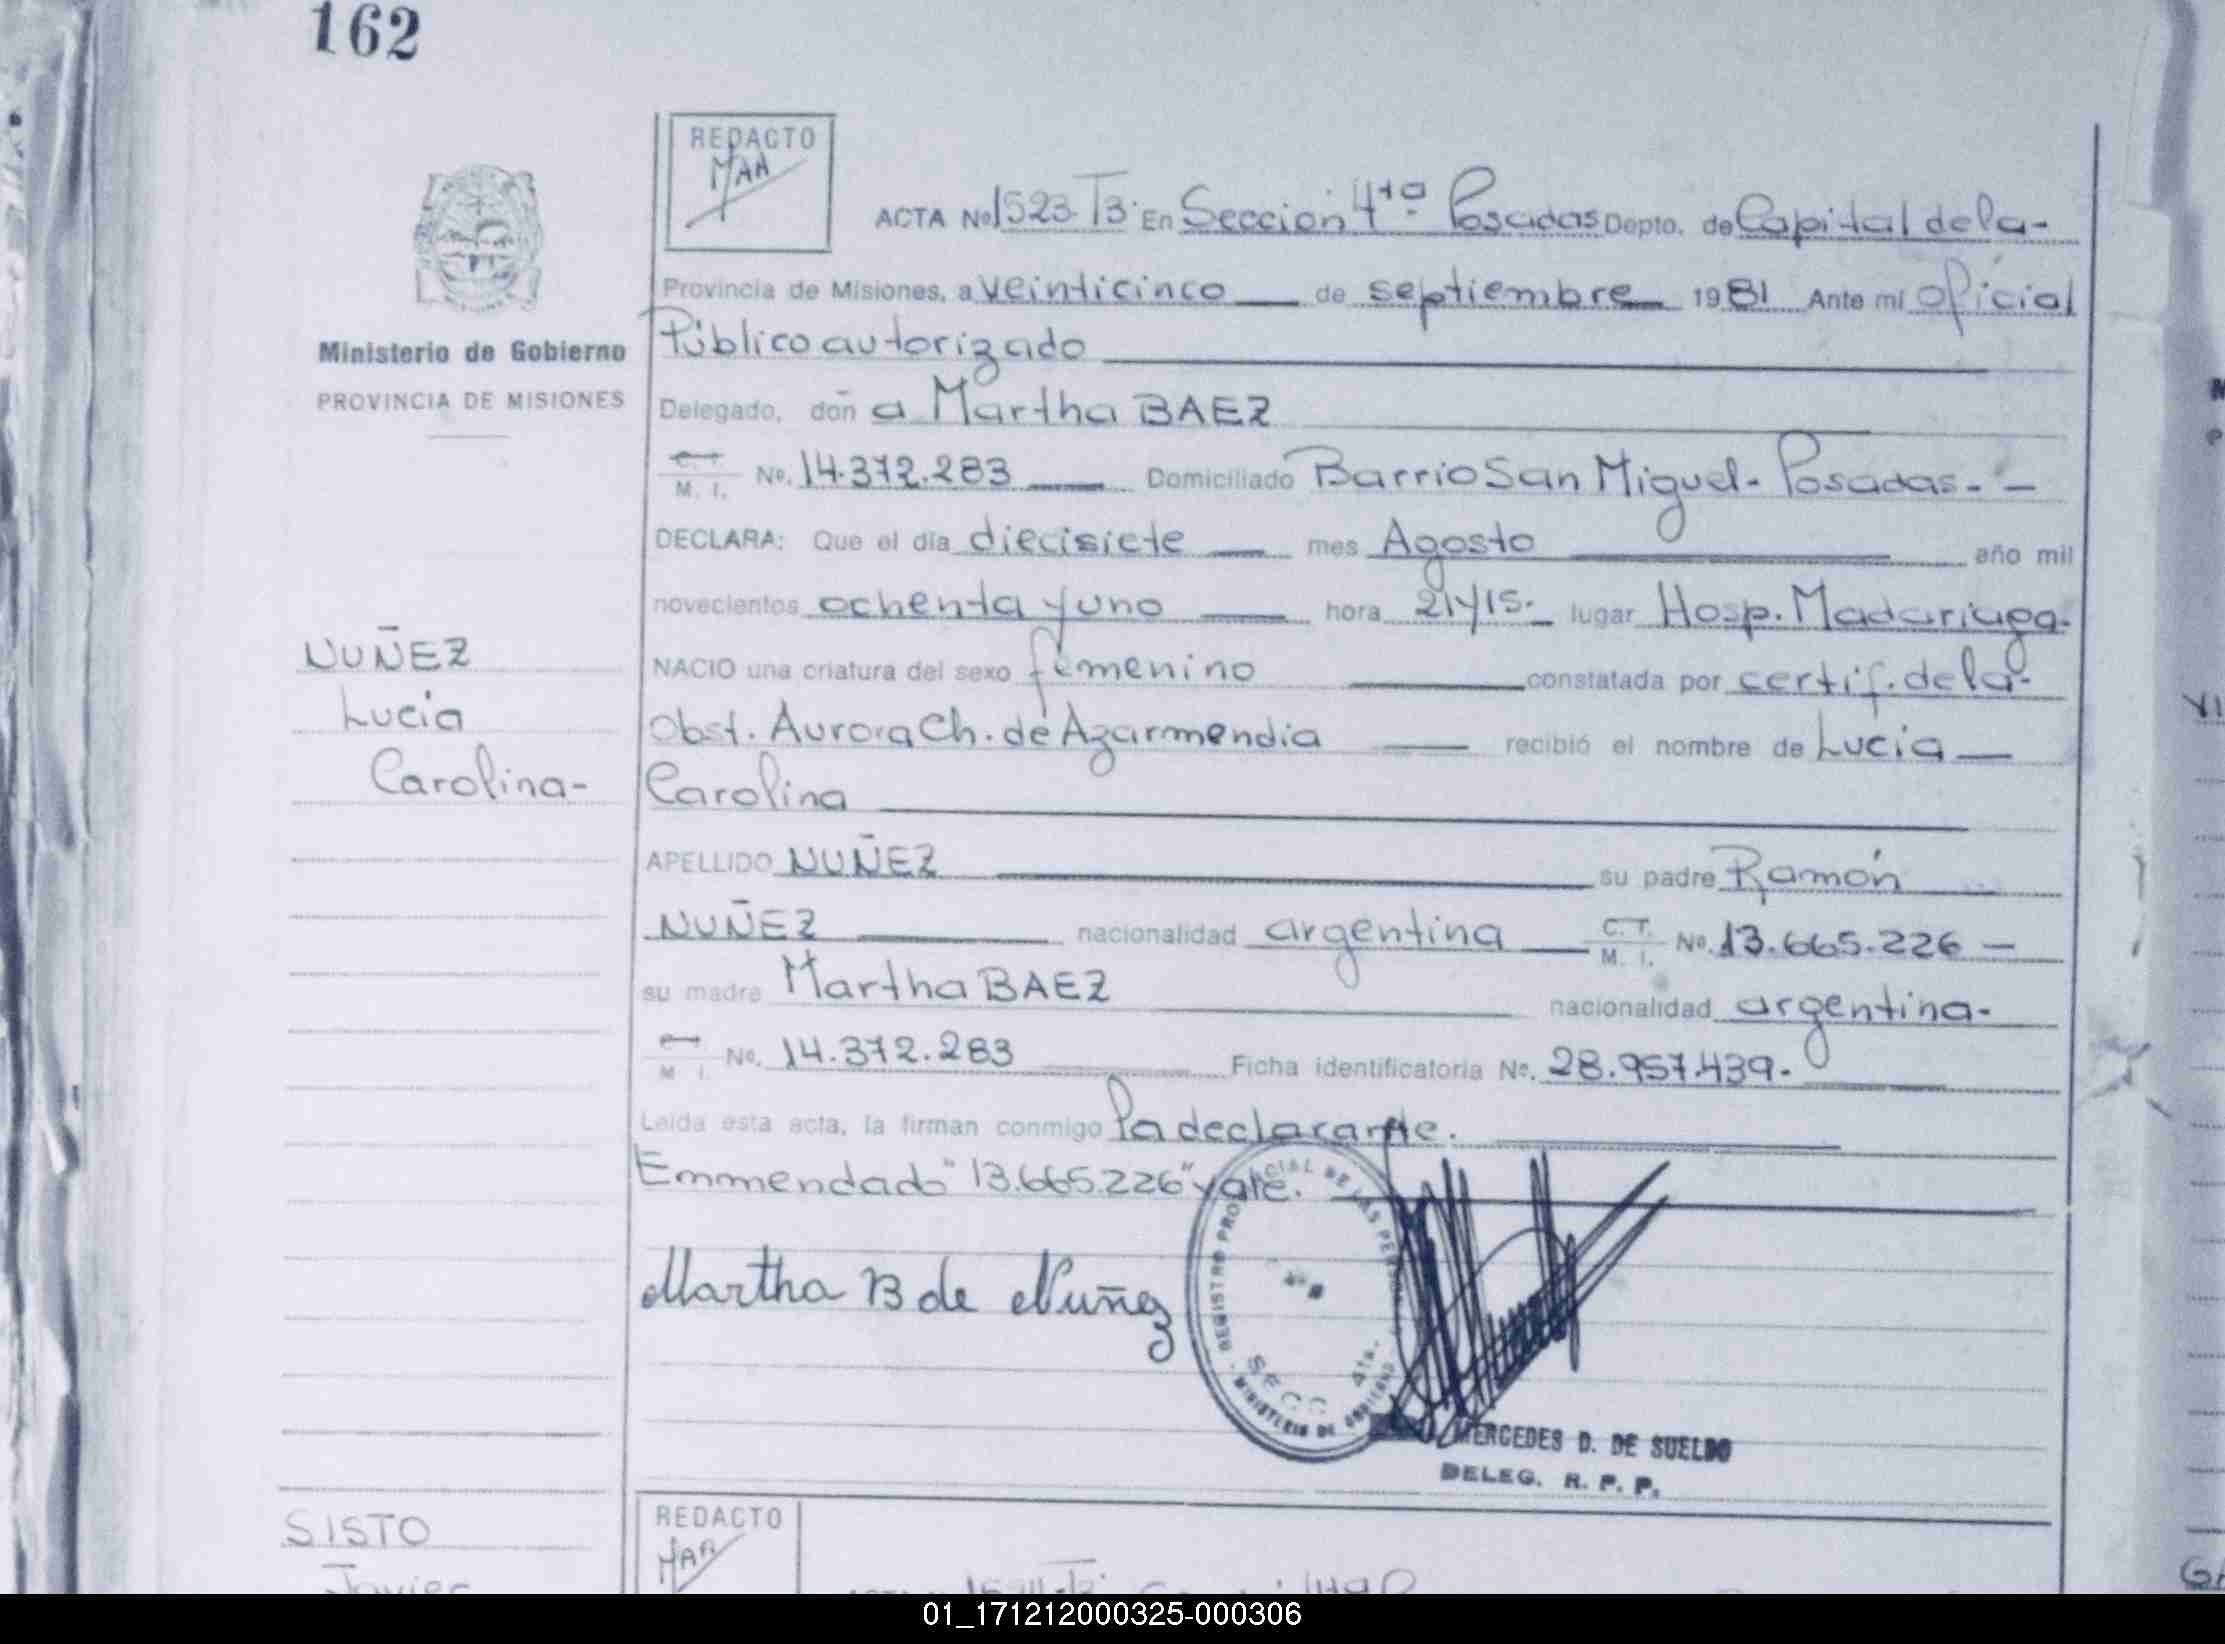 162
REDACTO
MAA
ACTA No 1523-T3- En Sección 4ta Posadas Depto. de Capital de la-
Provincia de Misiones, a veinticinco de septiembre 1981 Ante mí oficial
Ministerio de Gobierno
PROVINCIA DE MISIONES
Público autorizado
Delegado, doñ a Martha BAEZ
M. I. No. 14.372.283 Domiciliado Barrio San Miguel- Posadas- -
DECLARA: Que el día diecisiete mes Agosto año mil
novecientos ochenta y uno hora 21y15- lugar Hosp. Madariaga-
NUÑEZ
Lucia
Carolina-
NACIO una criatura del sexo femenino constatada por certif. de la-
Obst. Aurora Ch. de Azarmendia recibió el nombre de Lucia
Carolina
APELLIDO NUÑEZ su padre Ramón
NUÑEZ nacionalidad argentina C.I. M. I. No. 13.665.226 -
su madre Martha BAEZ nacionalidad argentina-
M I. No. 14.372.283 Ficha identificatoria No. 28.957.439-
Leída esta acta, la firman conmigo la declarante.
Emmendado "13.665.226" vale.
Martha B de Nuñez
REGISTRO PROVINCIAL DE LAS PER
SECC 4ta.
MINISTERIO DE GOBIERNO
MERCEDES D. DE SUELDO
DELEG. R. P. P.
SISTO
Javier
REDACTO
MAA
01_171212000325-000306